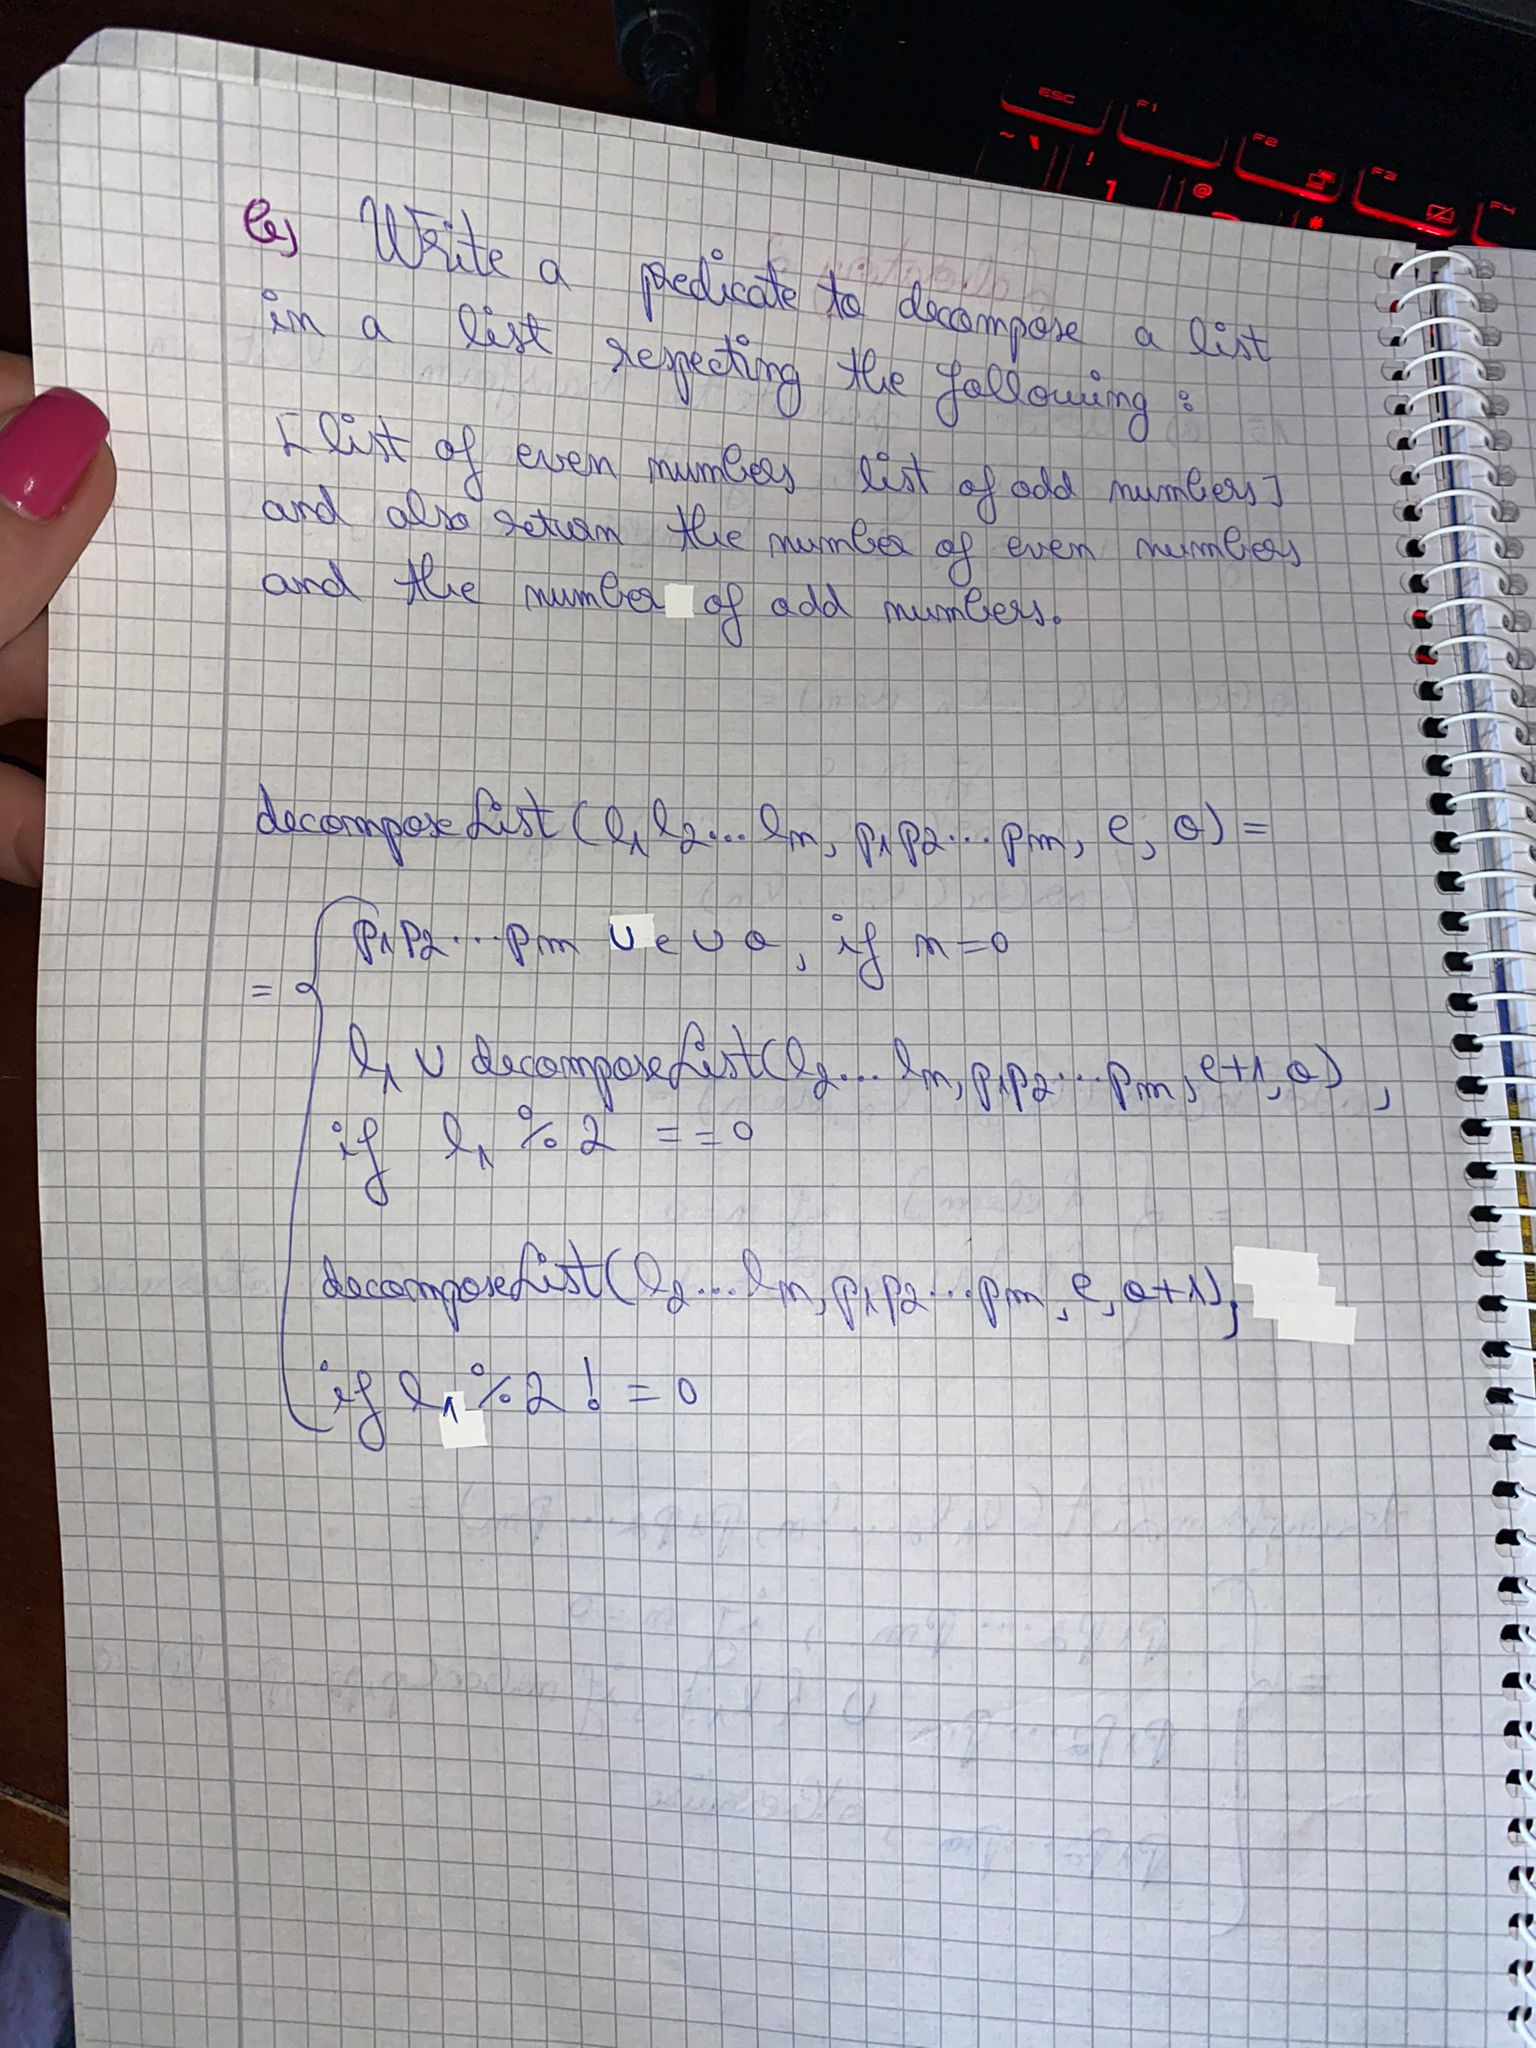 ESC F1 F2 F3 F4
~ ` ! 1 @ #
b) Write a predicate to decompose a list
in a list respecting the following:
[list of even numbers list of odd numbers]
and also return the number of even numbers
and the number of odd numbers.
decomposeList(l₁l₂...lₙ, p₁p₂...pₘ, e, o) =
= { p₁p₂...pₘ ∪ e ∪ o, if n=0
l₁ ∪ decomposeList(l₂...lₙ, p₁p₂...pₘ, e+1, o),
if l₁ % 2 == 0
decomposeList(l₂...lₙ, p₁p₂...pₘ, e, o+1),
if l₁ % 2 != 0